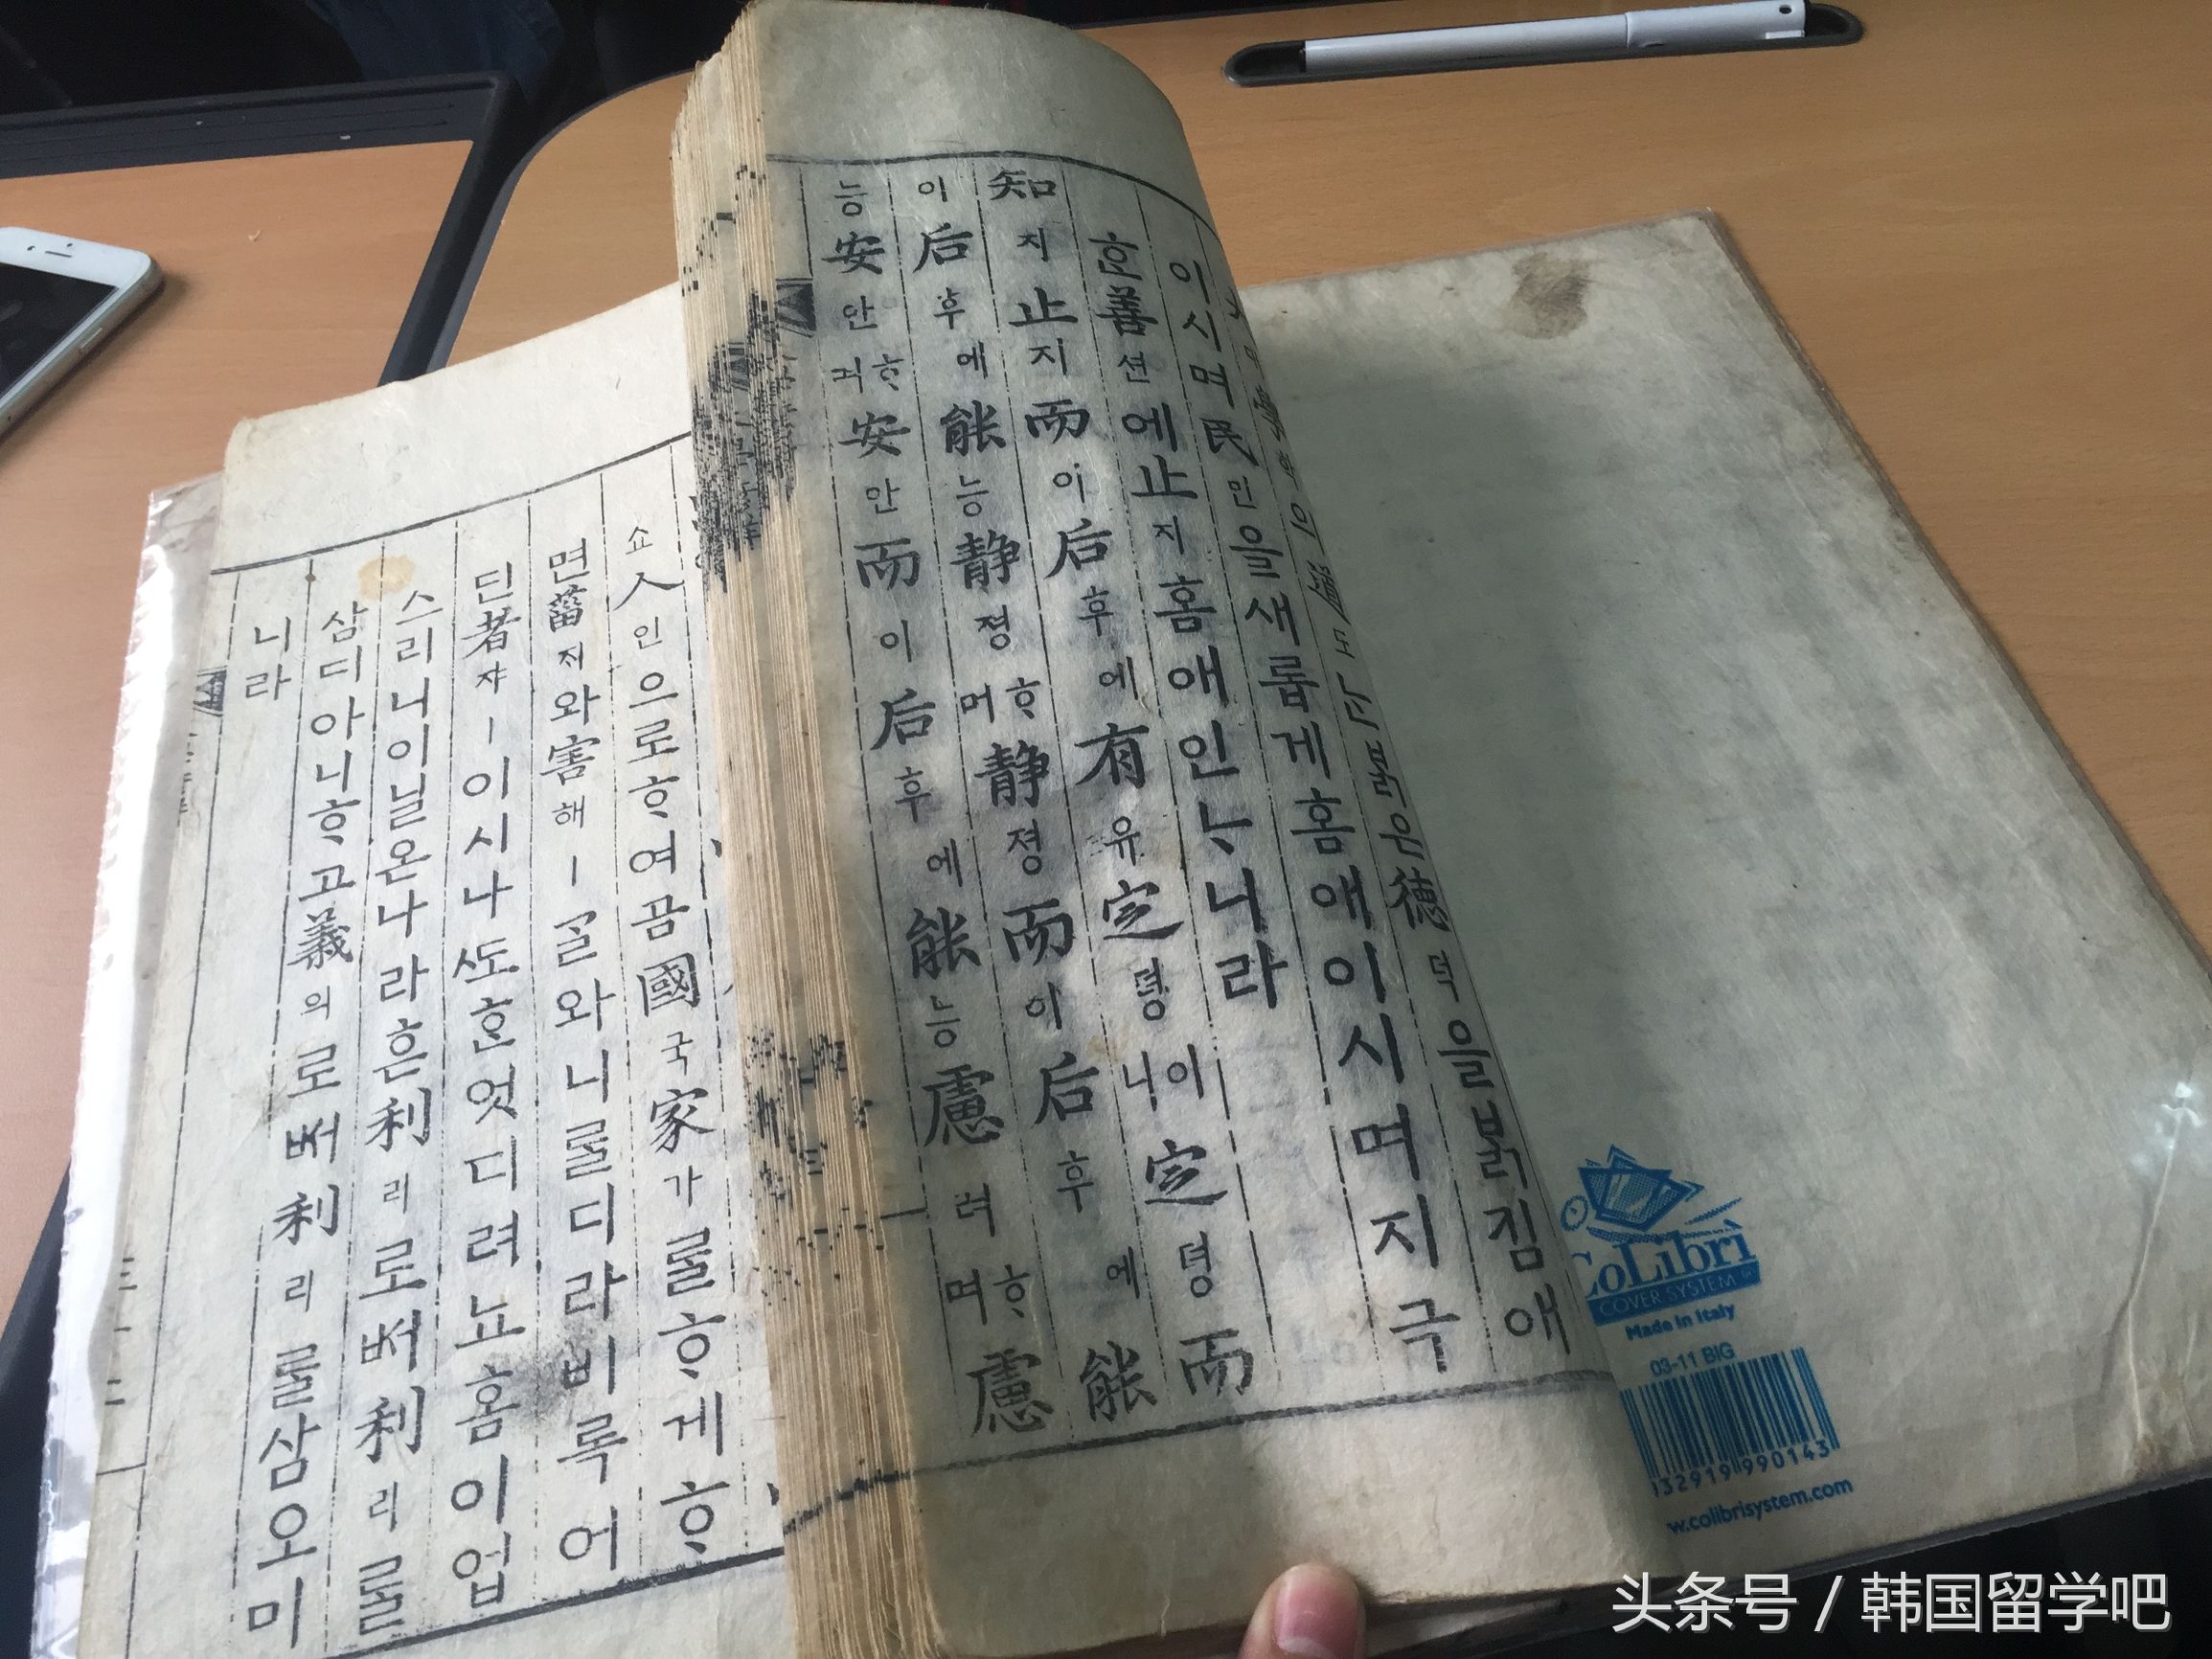 의道도ᄂᆞᆫᄇᆞᆯ근德덕을ᄇᆞᆰ김애
이시며民민을새롭게홈애이시며지극
ᄒᆞᆫ善션에止지홈애인ᄂᆞ니라
知지止지而이后후에有유定뎡이니定뎡而
이后후에能능静졍ᄒᆞ며静졍而이后후에能
능安안ᄒᆞ며安안而이后후에能능慮려ᄒᆞ며慮
쇼人인으로ᄒᆞ여곰國국家가ᄅᆞᆯᄒᆞ게ᄒᆞ
면菑ᄌᆡ와害해ㅣᄀᆞᆯ와니ᄅᆞᆯ디라비록어
딘者쟈ㅣ이시나ᄯᅩᄒᆞᆫ엇디려뇨홈이업
스리니이닐온나라ᄒᆞᆫ利리로ᄡᅥ利리ᄅᆞᆯ
삼디아니ᄒᆞ고義의로ᄡᅥ利리ᄅᆞᆯ삼오미
니라
CoLibrì
COVER SYSTEM
Made in Italy
03-11 BIG
132919 990143
w.colibrisystem.com
头条号 / 韩国留学吧